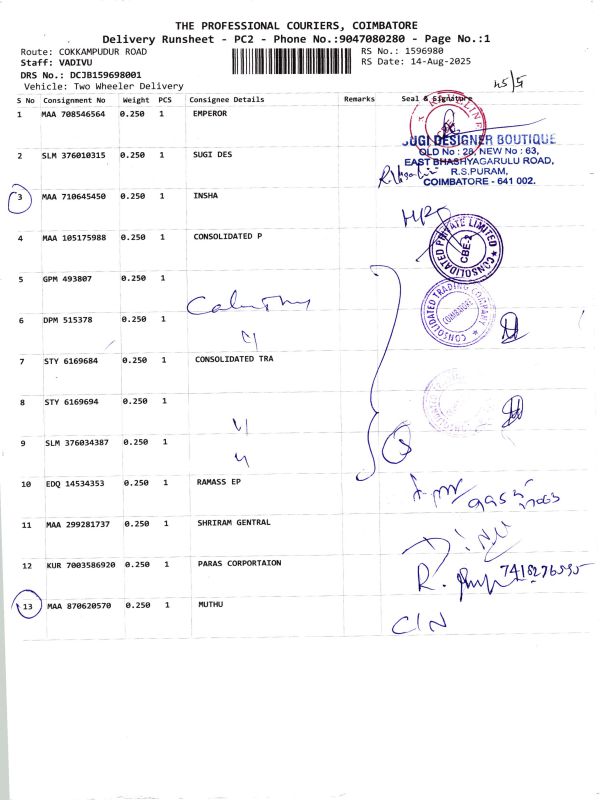 THE PROFESSIONAL COURIERS, COIMBATORE
Delivery Runsheet - PC2 - Phone No.:9047080280 - Page No.:1
Route: COKKAMPUDUR ROAD
RS No.: 1596980
Staff: VADIVU
RS Date: 14-Aug-2025
DRS No.: DCJB159698001
Vehicle: Two Wheeler Delivery
45/5
S No Consignment No Weight PCS Consignee Details Remarks Seal & Signature
1 MAA 708546564 0.250 1 EMPEROR
2 SLM 376010315 0.250 1 SUGI DES
SUGI DESIGNER BOUTIQUE
OLD No : 28, NEW No : 63,
EAST BHASHYAGARULU ROAD,
R.S.PURAM,
COIMBATORE - 641 002.
3 MAA 710645450 0.250 1 INSHA
4 MAA 105175988 0.250 1 CONSOLIDATED P
CONSOLIDATED PRIVATE LIMITED
CBE-2
5 GPM 493807 0.250 1
6 DPM 515378 0.250 1
CONSOLIDATED TRADING COMPANY
COIMBATORE
7 STY 6169684 0.250 1 CONSOLIDATED TRA
8 STY 6169694 0.250 1
9 SLM 376034387 0.250 1
10 EDQ 14534353 0.250 1 RAMASS EP
11 MAA 299281737 0.250 1 SHRIRAM GENTRAL
12 KUR 7003586920 0.250 1 PARAS CORPORTAION
7418276595
13 MAA 870620570 0.250 1 MUTHU
CIN